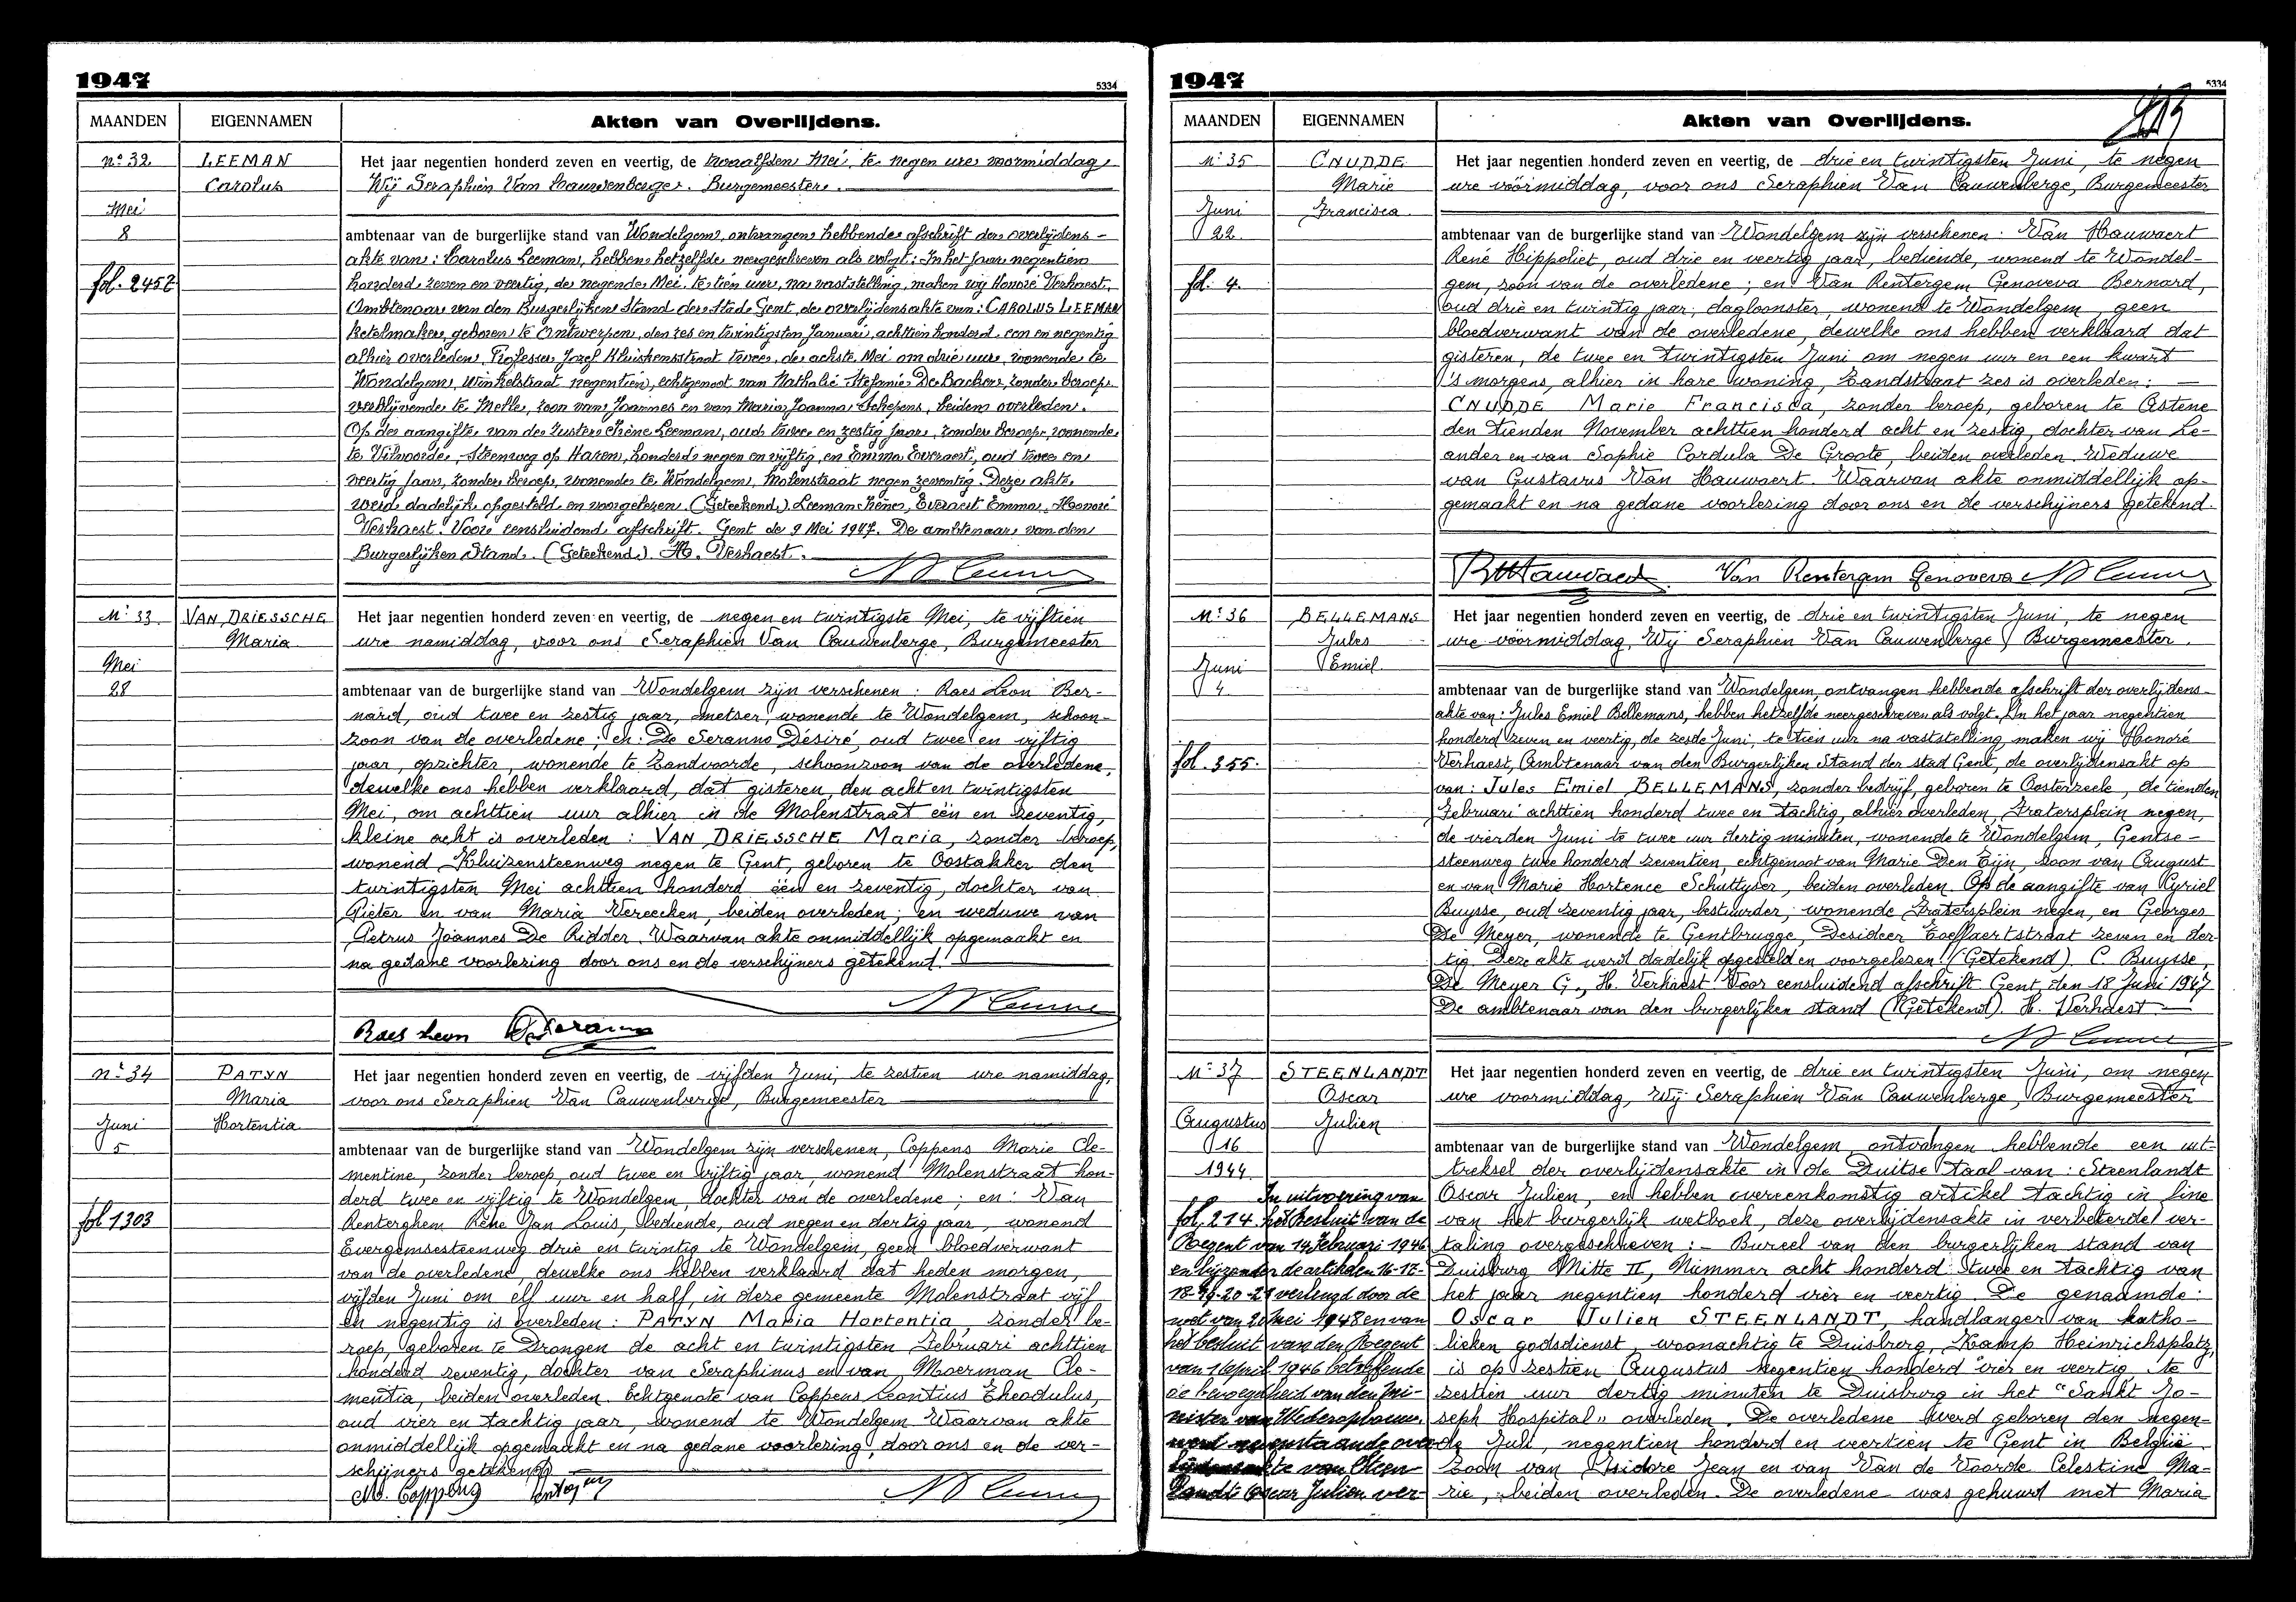 1947
5334
MAANDEN EIGENNAMEN Akten van Overlijdens.
n° 32
LEEMAN
Carolus
Mei
8
fol. 2452
Het jaar negentien honderd zeven en veertig, de twaalfden Mei, te negen ure voormiddag
Wij Seraphien Van Cauwenberge, Burgemeester.
ambtenaar van de burgerlijke stand van Wondelgem, ontvangen hebbende afschrift der overlijdens-
akte van: Carolus Leeman, hebben hetzelfde neergeschreven als volgt: In het jaar negentien
honderd zeven en veertig, de negende Mei, te tien uur, na vaststelling, maken wij Honoré Verhaest,
Ambtenaar van den Burgerlijken Stand der Stad Gent, de overlijdensakte van: CAROLUS LEEMAN
ketelmaker, geboren te Antwerpen, den zes en twintigsten Januari, achttien honderd een en negentig
alhier overleden, Professor Jozef Kluiskensstraat twee, de achtste Mei om drie uur, wonende te
Wondelgem, Winkelstraat negentien, echtgenoot van Nathalie Stefanie De Backer, zonder beroep,
verblijvende te Melle, zoon van Joannes en van Maria Joanna Schepens, beiden overleden.
Op de aangifte van de zuster Irène Leeman, oud twee en zestig jaar, zonder beroep, wonende
te Vilvoorde, Steenweg op Haren, honderd negen en vijftig, en Emma Everaert, oud twee en
veertig jaar, zonder beroep, wonende te Wondelgem, Molenstraat negen zeventig. Deze akte
werd dadelijk opgesteld en voorgelezen. (Geteekend.) Leeman Irène, Everaert Emma, Honoré
Verhaest. Voor eensluidend afschrift. Gent de 9 Mei 1947. De ambtenaar van den
Burgerlijken Stand. (Geteekend.) H. Verhaest.
N° 33
VAN DRIESSCHE
Maria
Mei
28
Het jaar negentien honderd zeven en veertig, de negen en twintigste Mei, te vijftien
ure namiddag, voor ons Seraphien Van Cauwenberge, Burgemeester
ambtenaar van de burgerlijke stand van Wondelgem zijn verschenen: Raes Leon Ber-
nard, oud twee en zestig jaar, metser, wonende te Wondelgem, schoon-
zoon van de overledene; en: De Seranno Désiré, oud twee en vijftig
jaar, opzichter, wonende te Zandvoorde, schoonzoon van de overledene,
dewelke ons hebben verklaard, dat gisteren, den acht en twintigsten
Mei, om achttien uur alhier in de Molenstraat één en zeventig,
kleine acht is overleden: VAN DRIESSCHE Maria, zonder beroep,
wonend Kluizensteenweg negen te Gent, geboren te Oostakker den
twintigsten Mei achttien honderd één en zeventig, dochter van
Pieter en van Maria Vereecken, beiden overleden; en weduwe van
Petrus Joannes De Ridder. Waarvan akte onmiddellijk opgemaakt en
na gedane voorlezing door ons en de verschijners getekend.
Raes Leon
n° 34
PATYN
Maria
Hortentia
Juni
5
fol 1303
Het jaar negentien honderd zeven en veertig, de vijfden Juni, te zestien ure namiddag,
voor ons Seraphien Van Cauwenberge, Burgemeester
ambtenaar van de burgerlijke stand van Wondelgem zijn verschenen, Coppens Marie Cle-
mentine, zonder beroep, oud twee en vijftig jaar, wonend Molenstraat hon-
derd twee en vijftig te Wondelgem, dochter van de overledene; en: Van
Renterghem Réne Jan Louis, bediende, oud negen en dertig jaar, wonend
Evergemsesteenweg drie en twintig te Wondelgem, geen bloedverwant
van de overledene, dewelke ons hebben verklaard dat heden morgen,
vijfden Juni om elf uur en half, in deze gemeente Molenstraat vijf
en negentig is overleden: PATYN Maria Hortentia, zonder be-
roep, geboren te Drongen de acht en twintigsten Februari achttien
honderd zeventig, dochter van Seraphinus en van Moerman Cle-
mentia, beiden overleden. Echtgenote van Coppens Leontius Theodulus,
oud vier en tachtig jaar, wonend te Wondelgem. Waarvan akte
onmiddellijk opgemaakt en na gedane voorlezing, door ons en de ver-
schijners getekend
M. Coppens
1947
5334
MAANDEN EIGENNAMEN Akten van Overlijdens.
N° 35
CNUDDE
Marie
Francisca
Juni
22
fol. 4.
Het jaar negentien honderd zeven en veertig, de drie en twintigsten Juni, te negen
ure vöörmiddag, voor ons Seraphien Van Cauwenberge, Burgemeester
ambtenaar van de burgerlijke stand van Wondelgem zijn verschenen: Van Hauwaert
René Hippoliet, oud drie en veertig jaar, bediende, wonend te Wondel-
gem, zoon van de overledene; en Van Rentergem Genoveva Bernard,
oud drie en twintig jaar, dagloonster, wonend te Wondelgem geen
bloedverwant van de overledene, dewelke ons hebben verklaard dat
gisteren, de twee en twintigsten Juni om negen uur en een kwart
's morgens, alhier in hare woning, Zandstraat zes is overleden: —
CNUDDE Marie Francisca, zonder beroep, geboren te Astene
den tienden November achttien honderd acht en zestig, dochter van Le-
ander en van Sophie Cordula De Groote, beiden overleden. Weduwe
van Gustavus Van Hauwaert. Waarvan akte onmiddellijk op-
gemaakt en na gedane voorlezing door ons en de verschijners getekend.
Van Rentergem Genoveva
N° 36
BELLEMANS
Jules
Emiel
Juni
4
fol. 355.
Het jaar negentien honderd zeven en veertig, de drie en twintigsten Juni, te negen
ure vöörmiddag, Wij Seraphien Van Cauwenberge, Burgemeester.
ambtenaar van de burgerlijke stand van Wondelgem, ontvangen hebbende afschrift der overlijdens-
akte van: Jules Emiel Bellemans, hebben hetzelfde neergeschreven als volgt. In het jaar negentien
honderd zeven en veertig, de zesde Juni, te tien uur na vaststelling, maken wij Honoré
Verhaest, Ambtenaar van den Burgerlijken Stand der stad Gent, de overlijdensakt op
van: Jules Emiel BELLEMANS, zonder bedrijf, geboren te Oosterzele, de tienden
Februari achttien honderd twee en tachtig, alhier overleden, Fratersplein negen,
de vierden Juni te twee uur dertig minuten, wonende te Wondelgem, Gentse-
steenweg twee honderd zeventien, echtgenoot van Marie Den Tijn, zoon van August
en van Marie Hortence Schuttyser, beiden overleden. Op de aangifte van Cyriel
Buysse, oud zeventig jaar, bestuurder, wonende Fratersplein negen, en Georges
De Meyer, wonende te Gentbrugge, Desideer Toeffaertstraat zeven en der-
tig. Deze akte werd dadelijk opgesteld en voorgelezen (Getekend) C. Buysse,
De Meyer G., H. Verhaest Voor eensluidend afschrift Gent, den 18 Juni 1947
De ambtenaar van den burgerlijken stand (Getekend). H. Verhaest —
N° 37
STEENLANDT
Oscar
Julien
Augustus
16
1944
In uitvoering van
fol. 214 het besluit van de
Regent van 14 Februari 1946
en bijzonder de artikelen 16-17-
18-19-20-21 verlengd door de
wet van 20 Mei 1948 en van
het besluit van den Regent
van 16 April 1946 betreffende
de bevoegdheid van den Mi-
nister van Wederopbouw,
werd nevenstaande over-
lijdensakte van Steen-
landt Oscar Julien ver-
Het jaar negentien honderd zeven en veertig, de drie en twintigsten Juni, om negen
ure voormiddag, Wij Seraphien Van Cauwenberge, Burgemeester
ambtenaar van de burgerlijke stand van Wondelgem ontvangen hebbende een uit-
treksel der overlijdensakte in de Duitse taal van: Steenlandt
Oscar Julien, en hebben overeenkomstig artikel tachtig in fine
van het burgerlijk wetboek, deze overlijdensakte in verbeterde ver-
taling overgeschreven: - Bureel van den burgerlijken stand van
Duisburg Mitte II, Nummer acht honderd twee en tachtig van
het jaar negentien honderd vier en veertig. De genaamde:
Oscar Julien STEENLANDT, handlanger van katho-
lieken godsdienst, woonachtig te Duisburg, Kamp Heinrichsplatz,
is op zestien Augustus negentien honderd vier en veertig, te
zestien uur dertig minuten te Duisburg in het "Sankt Jo-
seph Hospital" overleden. De overledene werd geboren den negen-
de Juli, negentien honderd en veertien te Gent in België.
Zoon van Isidore Jean en van Van de Voorde Celestine Ma-
rie, beiden overleden. De overledene was gehuwd met Maria